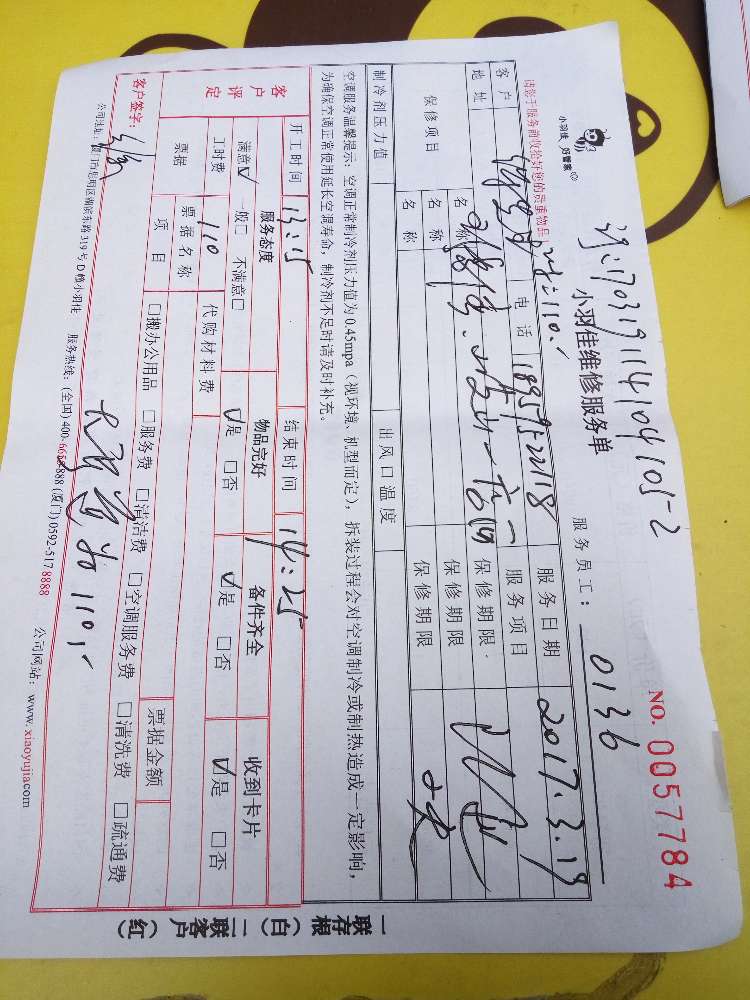 NO. 0057784
小羽佳 好管家
小羽佳维修服务单
服务员工: 0136
请您于服务前收拾好您的贵重物品!
客户
电话
服务日期 2017.3.19
地址
服务项目
保修项目
名称
保修期限
名称
保修期限
名称
保修期限
制冷剂压力值
出风口温度
空调服务温馨提示:空调正常制冷剂压力值为0.45mpa(视环境、机型而定),拆装过程会对空调制冷或制热造成一定影响,
为确保空调正常使用延长空调寿命,制冷剂不足时请及时补充。
开工时间 13:15 结束时间 14:25
客户评定
服务态度 物品完好 备件齐全 收到卡片
满意☑ 一般□ 不满意□ ☑是 □否 ☑是 □否 ☑是 □否
工时费 110 代购材料费
票据
票据名称 票据金额
项目 □搬办公用品 □服务费 □清洁费 □空调服务费 □清洗费 □疏通费
客户签字:
公司地址:厦门市思明区湖滨东路319号D幢小羽佳 服务热线:(全国)400-6658-888 (厦门)0592-5178888 公司网站:www.xiaoyujia.com
一联存根(白)二联客户(红)